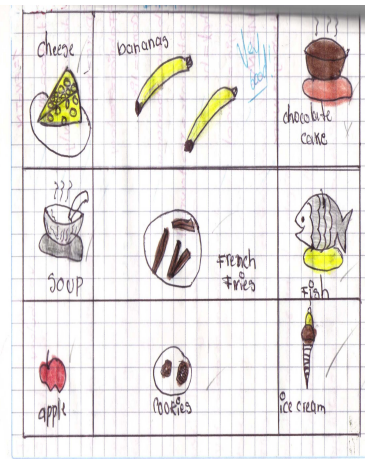 cheese
bananas
Very
good
chocolate
cake
SOUP
French
Fries
Fish
apple
cookies
ice cream